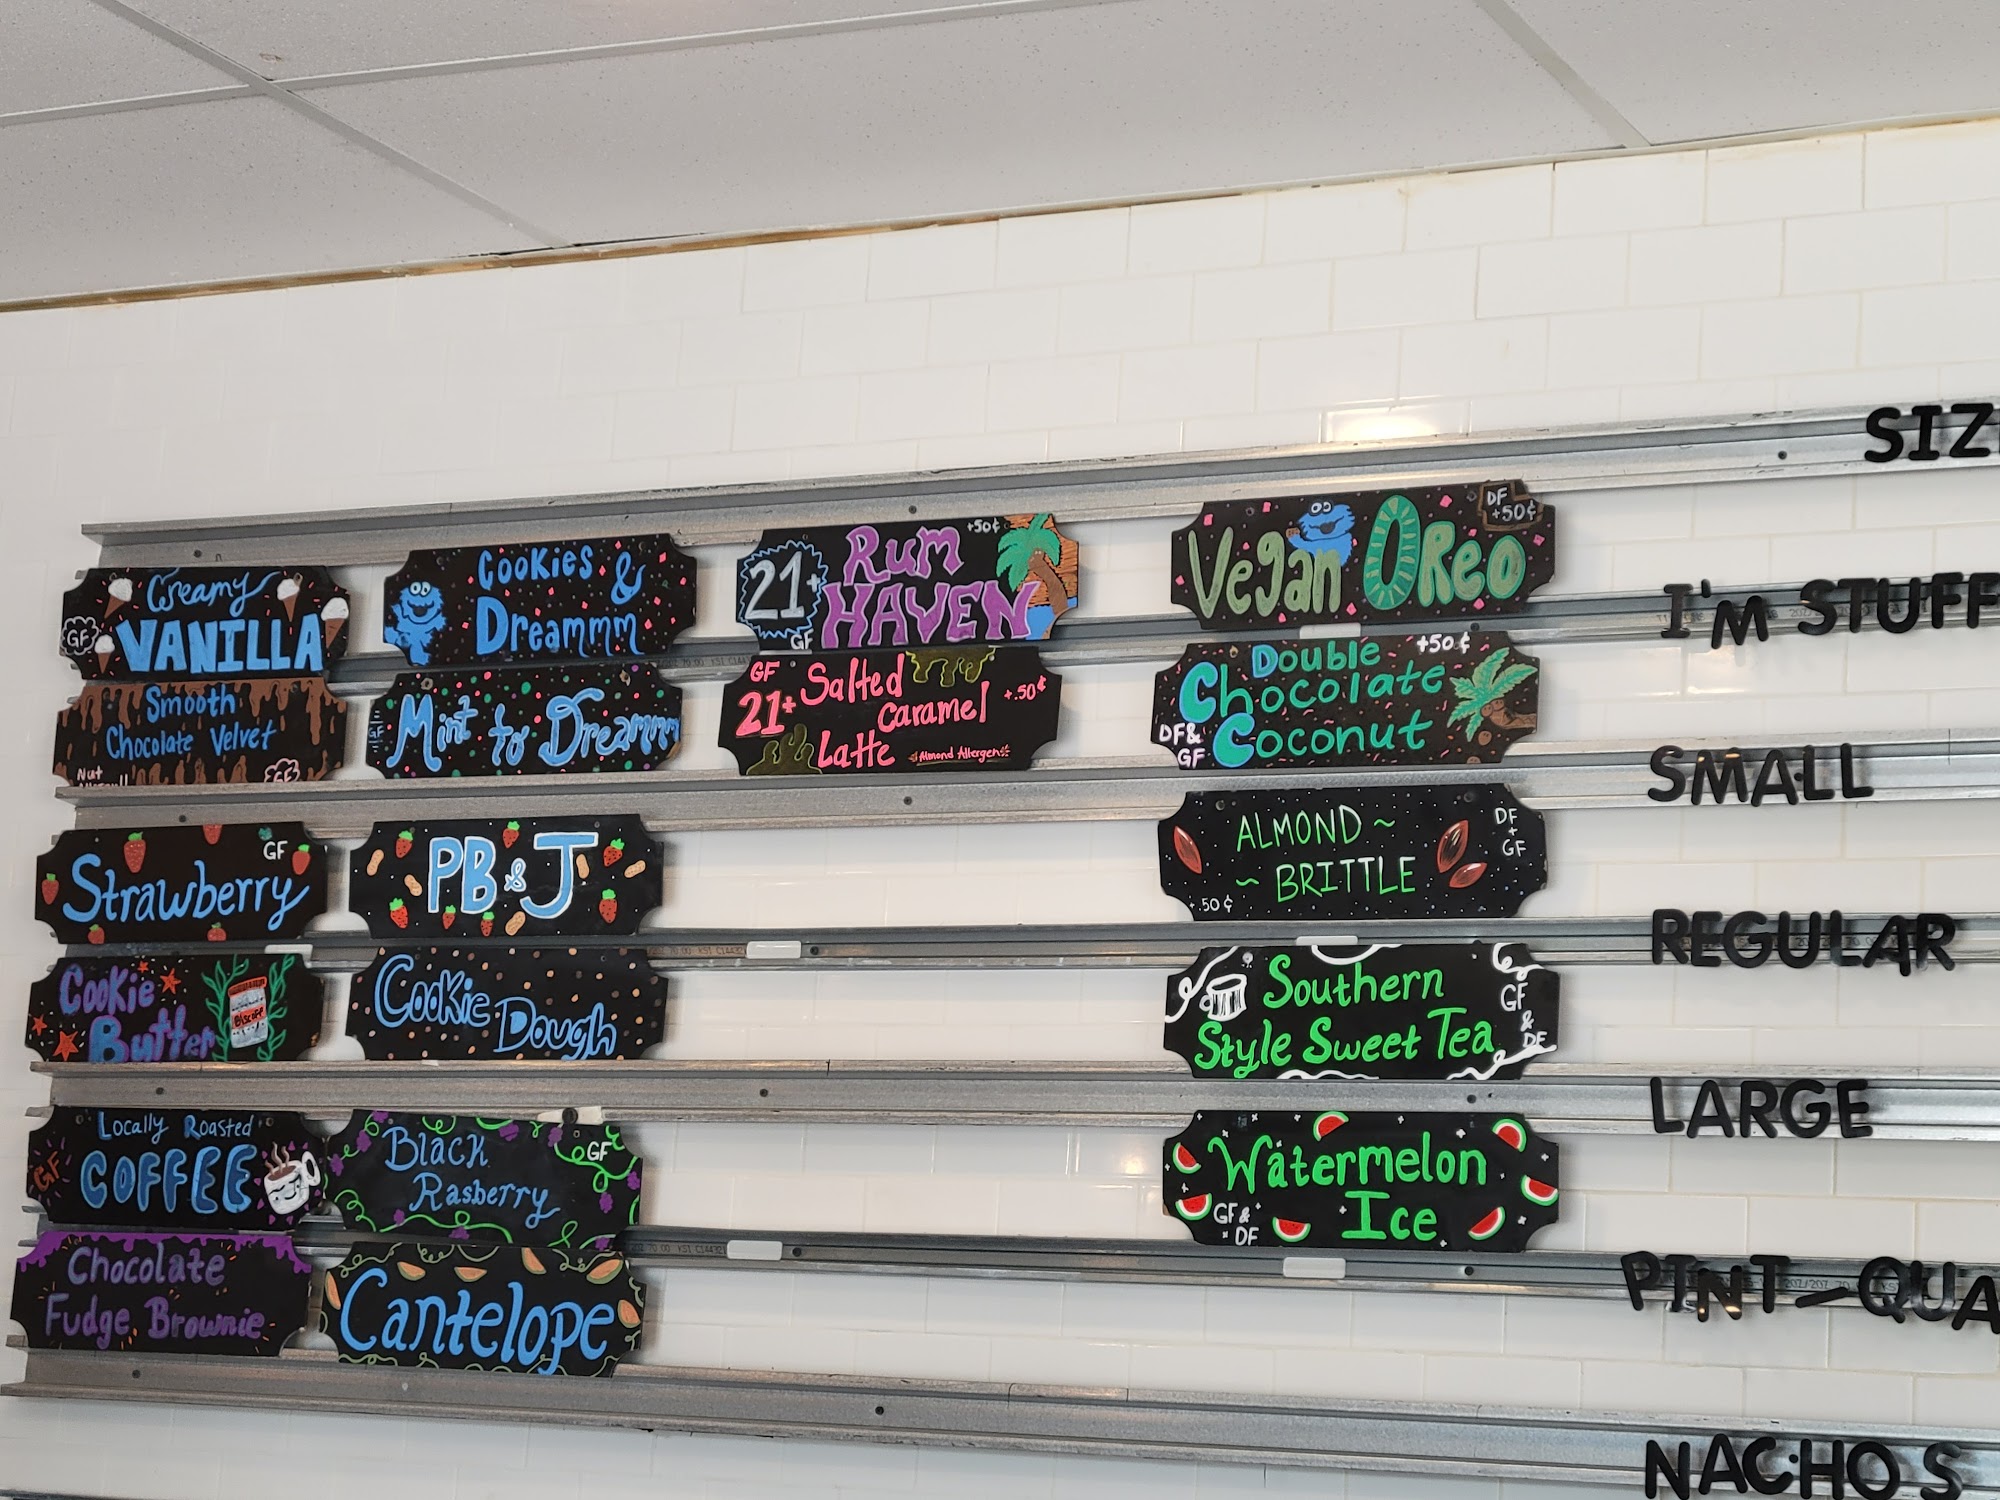 Creamy
GF
VANILLA
Smooth
Chocolate Velvet
Nut
GF
GF
Strawberry
Cookie
Butter
Biscoff
Locally Roasted
GF
COFFEE
Chocolate
Fudge Brownie
Cookies &
Dreammm
GF
Mint to Dreammm
PB & J
Cookie
Dough
Black
GF
Rasberry
Cantelope
+50¢
21+
Rum
HAVEN
GF
GF
21+
Salted
Caramel
+.50¢
Latte
Almond Allergen
DF
+50¢
Vegan Oreo
Double
+50¢
Chocolate
Coconut
DF&
GF
ALMOND ~
~ BRITTLE
DF
+
GF
+.50¢
Southern
Style Sweet Tea
GF
&
DF
Watermelon
Ice
GF &
DF
SIZ
I'M STUFF
SMALL
REGULAR
LARGE
PINT - QUA
NACHOS